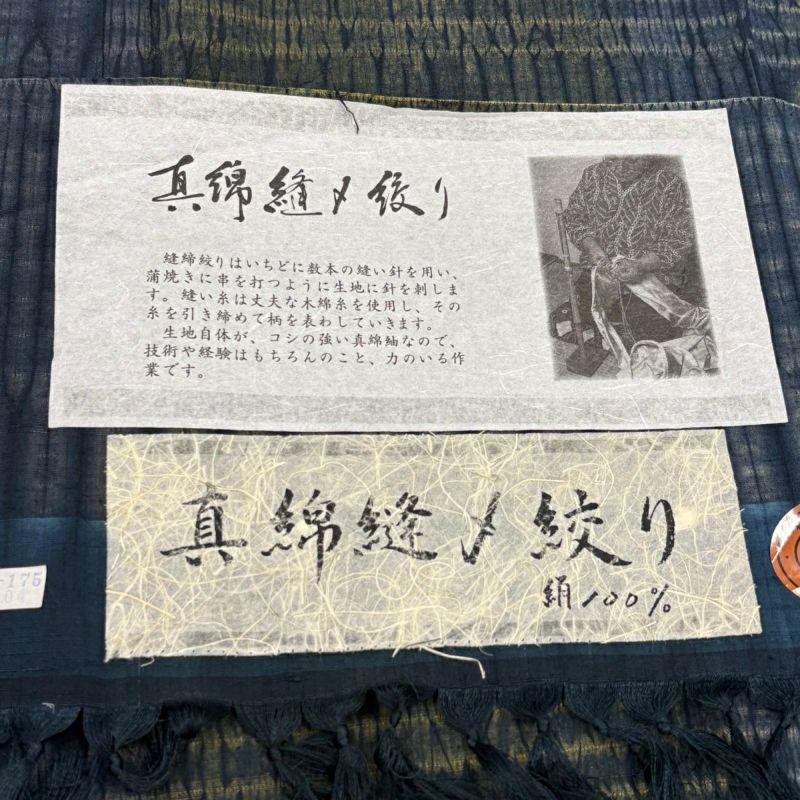 真綿縫〆絞り
縫締絞りはいちどに数本の縫い針を用い、
蒲焼きに串を打つように生地に針を刺しま
す。縫い糸は丈夫な木綿糸を使用し、その
糸を引き締めて柄を表わしていきます。
生地自体が、コシの強い真綿紬なので、
技術や経験はもちろんのこと、力のいる作
業です。
真綿縫〆絞り
絹100%
-175
04